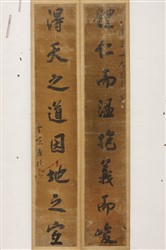 體仁而溫抱義而峻
得天之道因地之宜